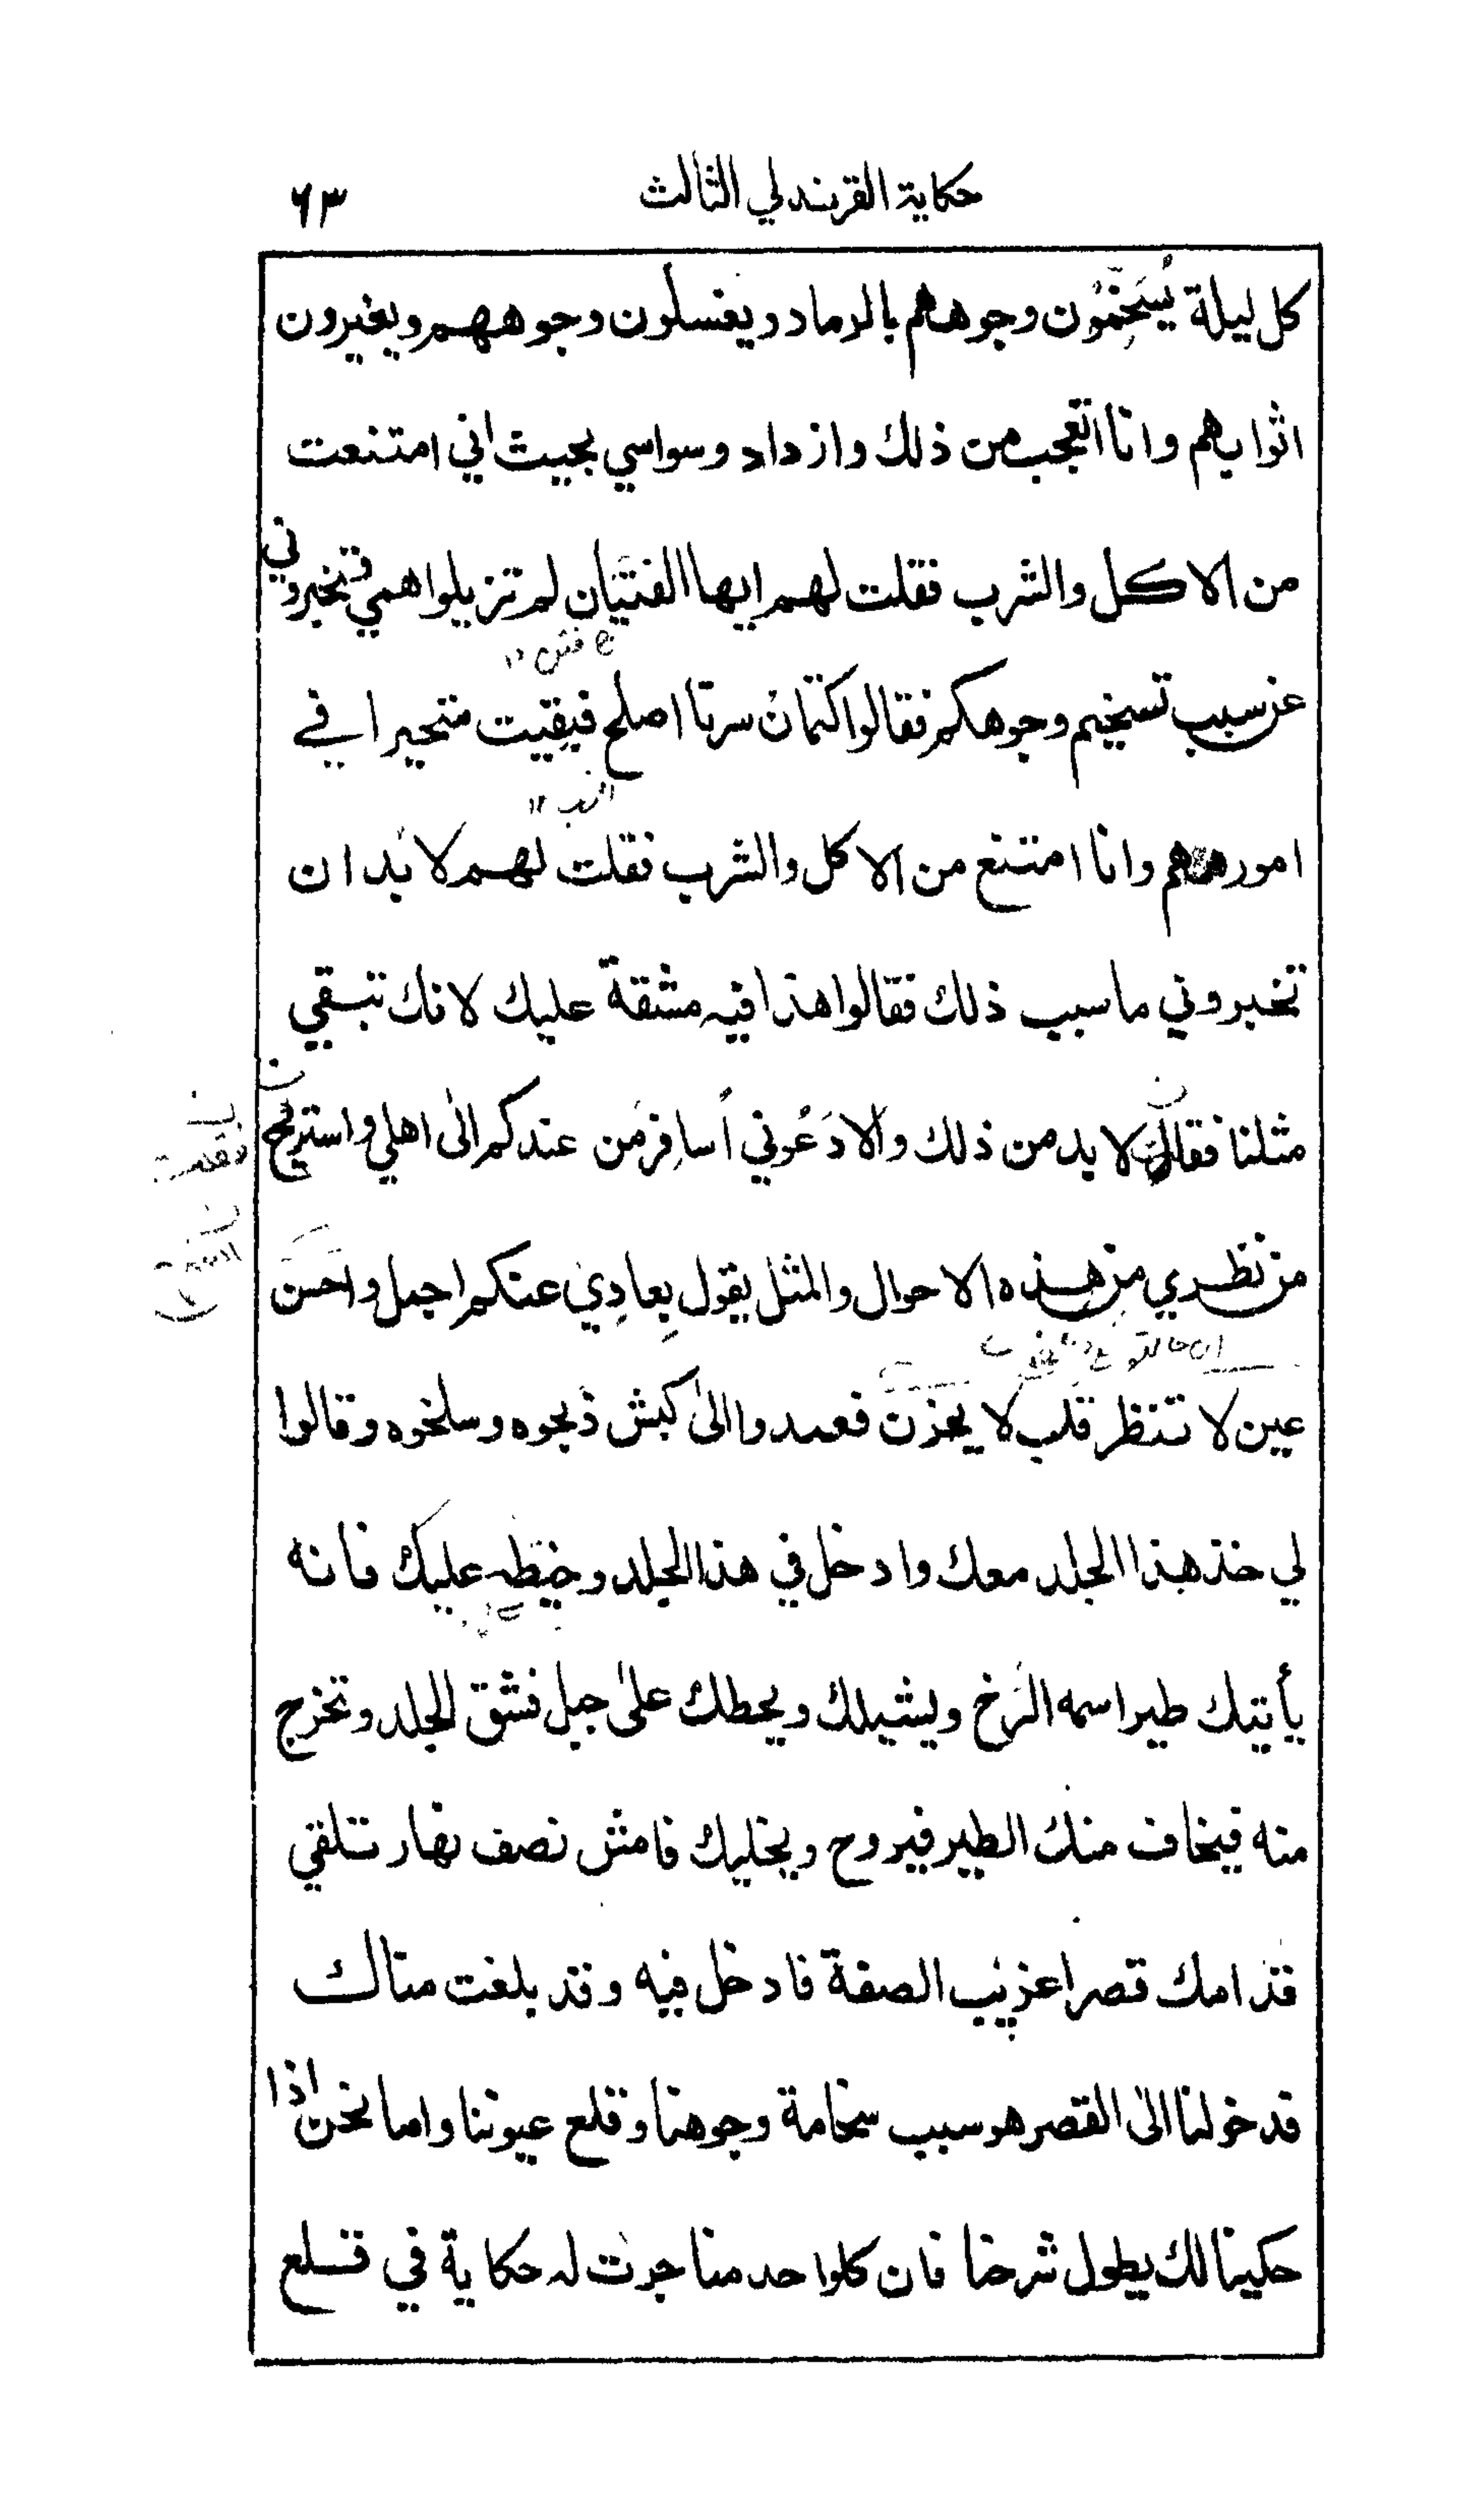 حكاية القرندلي الثالث ٦٣
كل ليلة يُسَخِّمُون وجوههم بالرماد ويغسلون وجوههم ويغيرون
اثوابهم وانا اتعجب من ذلك وازداد وسواسي بحيث اني امتنعت
من الاكل والشرب فقلت لهم ايها الفتيان لم تزيلوا همي وتخبروني
عن سبب تسخيم وجوهكم فقالوا اكتمان سرنا اصلح فبقيت متحيرا في
امورهم وانا امتنع من الاكل والشرب فقلت لهم لا بد ان
تخبروني ما سبب ذلك فقالوا هذا فيه مشقة عليك لانك تبقي
مثلنا فقلت لا بد من ذلك والا دَعُوني أسافِر من عندكم الى اهلي واستريح
من نظري من هذه الاحوال والمثل يقول بِعادِي عنكم اجمل واحسن
عين لا تنظر قلب لا يحزن فعمدوا الى كبش ذبحوه وسلخوه وقالوا
لي خذ هذا الجلد معك وادخل في هذا الجلد وخيّطه عليك فانه
يأتيك طير اسمه الرخ ويشيلك ويحطك على جبل فشق الجلد وتخرج
منه فيخاف منك الطير فيروح ويخليك فامش نصف نهار تلقي
قدامك قصرا غريب الصفة فادخل فيه وقد بلغت مناك
فدخولنا الى القصر هو سبب سخامة وجوهنا وقلع عيوننا واما نحن اذا
حكينا لك يطول شرحنا فان كلواحد منا جرت له حكاية في قلع